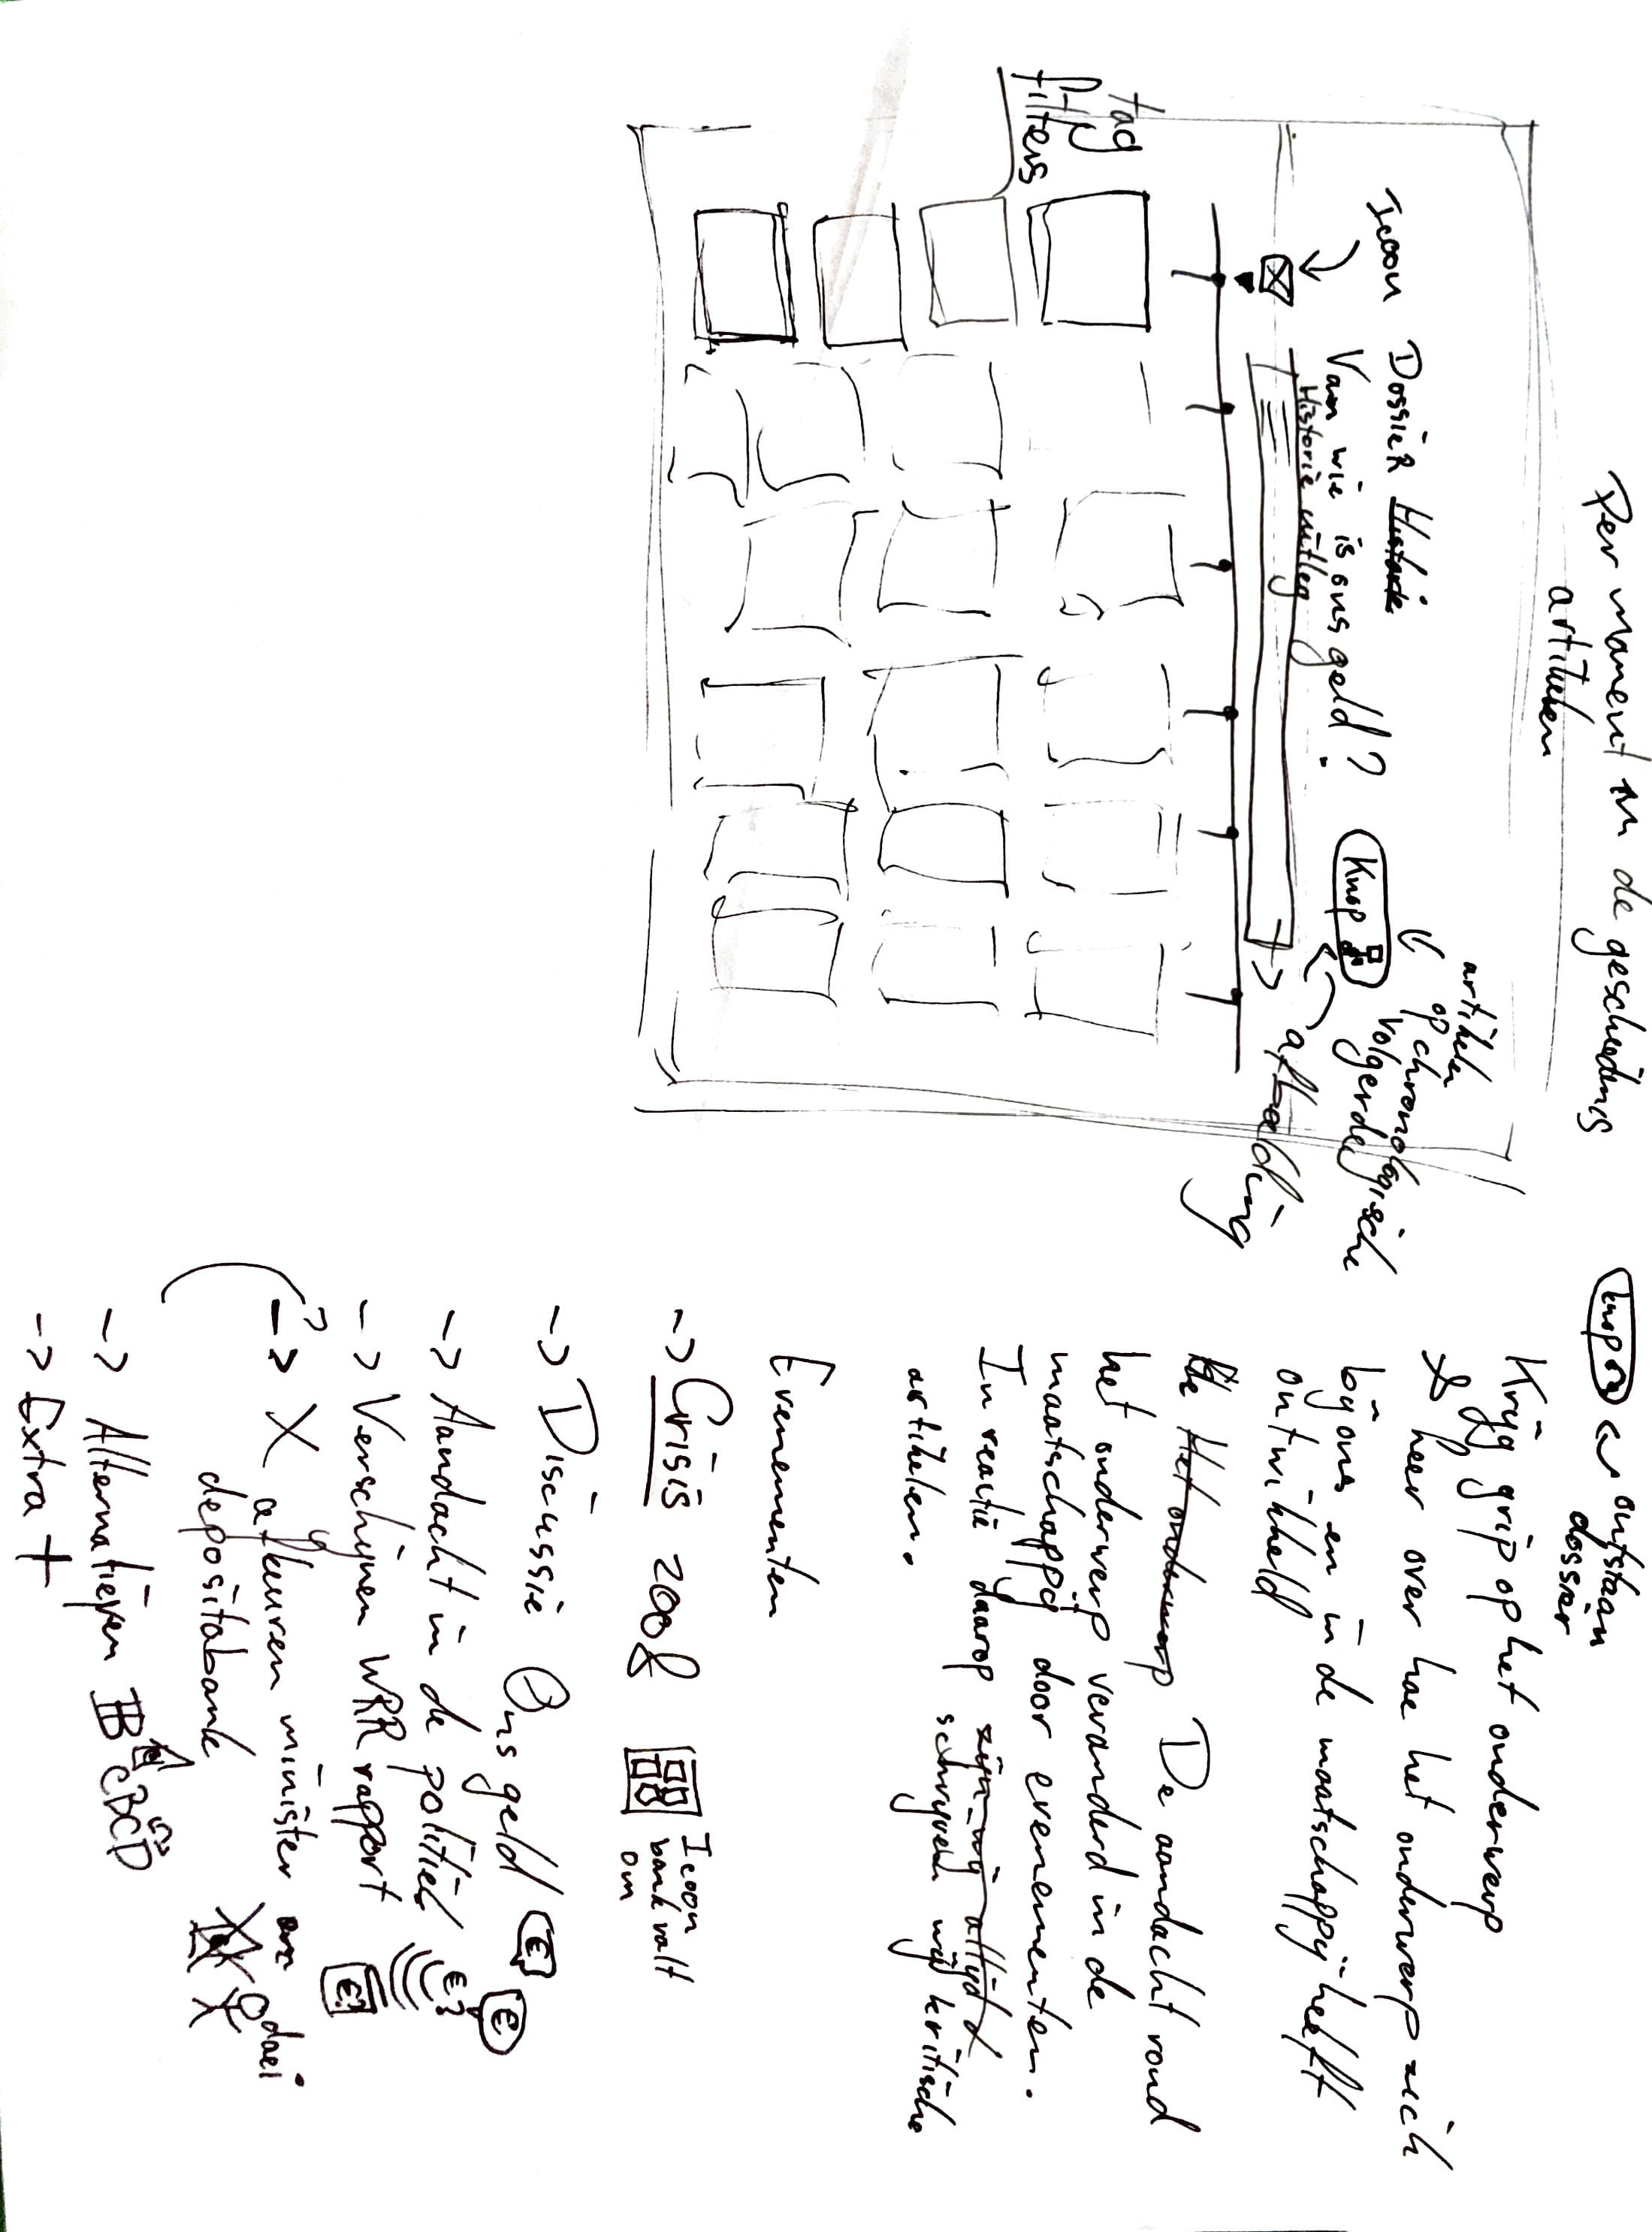 Per moment in de geschiedenis
artikelen
artikelen
op chronologische
volgerde
Icoon
Dossier Historie
Van wie is ons geld?
Historie uitleg
Knop
afbeelding
tag
filters
knop
ontstaan
dossier
Krijg grip op het onderwerp
& leer over hoe het onderwerp zich
bij ons en in de maatschappij heeft
ontwikkeld
Het onderwerp De aandacht rond
het onderwerp veranderd in de
maatschappij door evenementen.
In reactie daarop zijn wij altijd
schrijven wij kritische
artikelen.
Evenementen
-> Crisis 2008
Icoon
bank valt
om
-> Discussie Ons geld
€
€
-> Aandacht in de politiek
€?
-> Verschijnen WRR rapport
€?
?
-> X afkeuren minister
depositobank
doei
-> Alternatieven B CBCD
-> Extra +